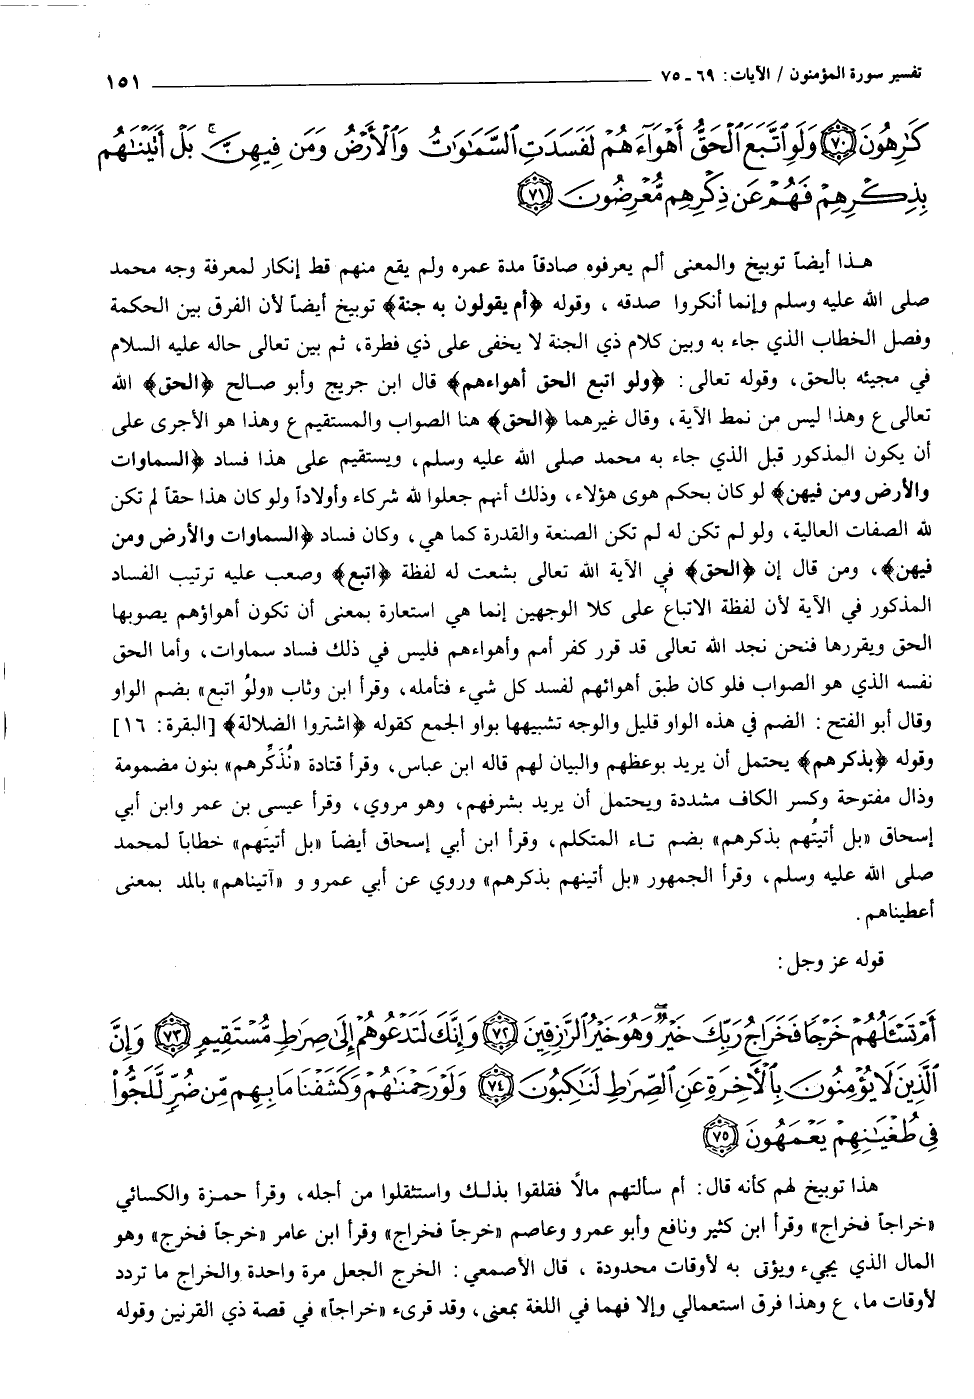 تفسير سورة المؤمنون / الآيات: ٦٩ - ٧٥ ١٥١
كَٰرِهُونَ ٧٠ وَلَوِ ٱتَّبَعَ ٱلْحَقُّ أَهْوَآءَهُمْ لَفَسَدَتِ ٱلسَّمَٰوَٰتُ وَٱلْأَرْضُ وَمَن فِيهِنَّ ۚ بَلْ أَتَيْنَٰهُم
بِذِكْرِهِمْ فَهُمْ عَن ذِكْرِهِم مُّعْرِضُونَ ٧١
هـذا أيضاً توبيخ والمعنى ألم يعرفوه صادقاً مدة عمره ولم يقع منهم قط إنكار لمعرفة وجه محمد
صلى الله عليه وسلم وإنما أنكروا صدقه ، وقوله ﴿أم يقولون به جنة﴾ توبيخ أيضاً لأن الفرق بين الحكمة
وفصل الخطاب الذي جاء به وبين كلام ذي الجنة لا يخفى على ذي فطرة، ثم بين تعالى حاله عليه السلام
في مجيئه بالحق، وقوله تعالى: ﴿ولو اتبع الحق أهواءهم﴾ قال ابن جريج وأبو صـالح ﴿الحق﴾ الله
تعالى ع وهذا ليس من نمط الآية، وقال غيرهما ﴿الحق﴾ هنا الصواب والمستقيم ع وهذا هو الأجرى على
أن يكون المذكور قبل الذي جاء به محمد صلى الله عليه وسلم، ويستقيم على هذا فساد ﴿السماوات
والأرض ومن فيهن﴾ لو كان بحكم هوى هؤلاء، وذلك أنهم جعلوا لله شركاء وأولاداً ولو كان هذا حقاً لم تكن
لله الصفات العالية، ولو لم تكن له لم تكن الصنعة والقدرة كما هي، وكان فساد ﴿السماوات والأرض ومن
فيهن﴾، ومن قال إن ﴿الحق﴾ في الآية الله تعالى بشعت له لفظة ﴿اتبع﴾ وصعب عليه ترتيب الفساد
المذكور في الآية لأن لفظة الاتباع على كلا الوجهين إنما هي استعارة بمعنى أن تكون أهواؤهم يصوبها
الحق ويقررها فنحن نجد الله تعالى قد قرر كفر أمم وأهواءهم فليس في ذلك فساد سماوات، وأما الحق
نفسه الذي هو الصواب فلو كان طبق أهوائهم لفسد كل شيء فتأمله، وقرأ ابن وثاب «ولوُ اتبع» بضم الواو
وقال أبو الفتح: الضم في هذه الواو قليل والوجه تشبيهها بواو الجمع كقوله ﴿اشتروا الضلالة﴾ [البقرة: ١٦]
وقوله ﴿بذكرهم﴾ يحتمل أن يريد بوعظهم والبيان لهم قاله ابن عباس، وقرأ قتادة «نُذَكِّرهم» بنون مضمومة
وذال مفتوحة وكسر الكاف مشددة ويحتمل أن يريد بشرفهم، وهو مروي، وقرأ عيسى بن عمر وابن أبي
إسحاق «بل أتيتُهم بذكرهم» بضم تـاء المتكلم، وقرأ ابن أبي إسحاق أيضاً «بل أتيتَهم» خطاباً لمحمد
صلى الله عليه وسلم، وقرأ الجمهور «بل أتينهم بذكرهم» وروي عن أبي عمرو و «آتيناهم» بالمد بمعنى
أعطيناهم.
قوله عز وجل:
أَمْ تَسْـَٔلُهُمْ خَرْجًا فَخَرَاجُ رَبِّكَ خَيْرٌ ۖ وَهُوَ خَيْرُ ٱلرَّٰزِقِينَ ٧٢ وَإِنَّكَ لَتَدْعُوهُمْ إِلَىٰ صِرَٰطٍ مُّسْتَقِيمٍ ٧٣ وَإِنَّ
ٱلَّذِينَ لَا يُؤْمِنُونَ بِٱلْأَخِرَةِ عَنِ ٱلصِّرَٰطِ لَنَٰكِبُونَ ٧٤ وَلَوْ رَحِمْنَٰهُمْ وَكَشَفْنَا مَا بِهِم مِّن ضُرٍّ لَّلَجُّوا۟
فِى طُغْيَٰنِهِمْ يَعْمَهُونَ ٧٥
هذا توبيخ لهم كأنه قال: أم سألتهم مالًا فقلقوا بذلـك واستثقلوا من أجله، وقرأ حمـزة والكسائي
«خراجاً فخراج» وقرأ ابن كثير ونافع وأبو عمرو وعاصم «خرجاً فخراج» وقرأ ابن عامر «خرجاً فخرج» وهو
المال الذي يجيء ويؤتى به لأوقات محدودة ، قال الأصمعي: الخرج الجعل مرة واحدة والخراج ما تردد
لأوقات ما، ع وهذا فرق استعمالي وإلا فهما في اللغة بمعنى، وقد قرىء «خراجاً» في قصة ذي القرنين وقوله